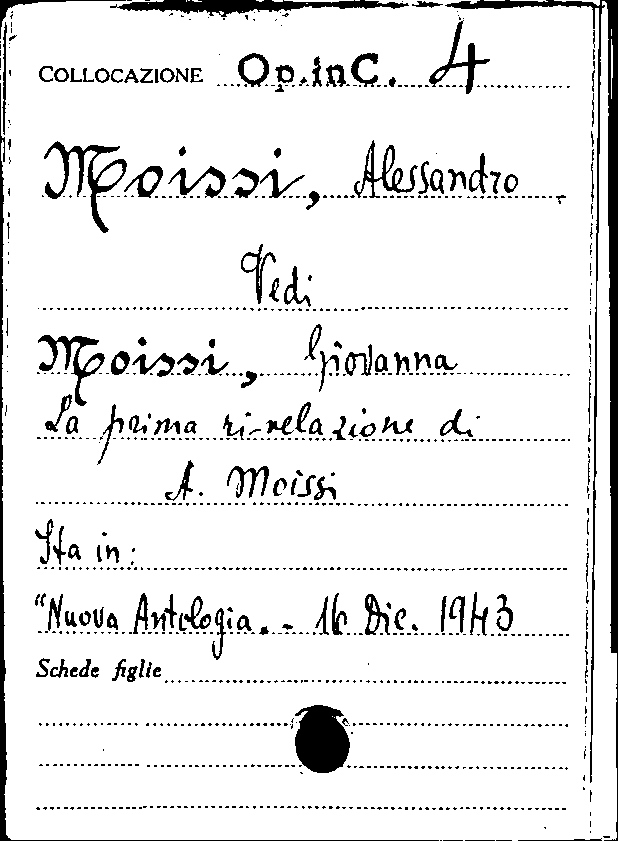 COLLOCAZIONE Op.in C. 4
Moissi, Alessandro
Vedi
Moissi, Giovanna
La prima ri-velazione di
A. Moissi
Sta in:
"Nuova Antologia. - 16 Dic. 1943
Schede figlie